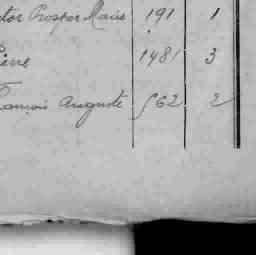 ctor Prosper Marie 191 1
ierre 1481 3
rançois Auguste 562 2